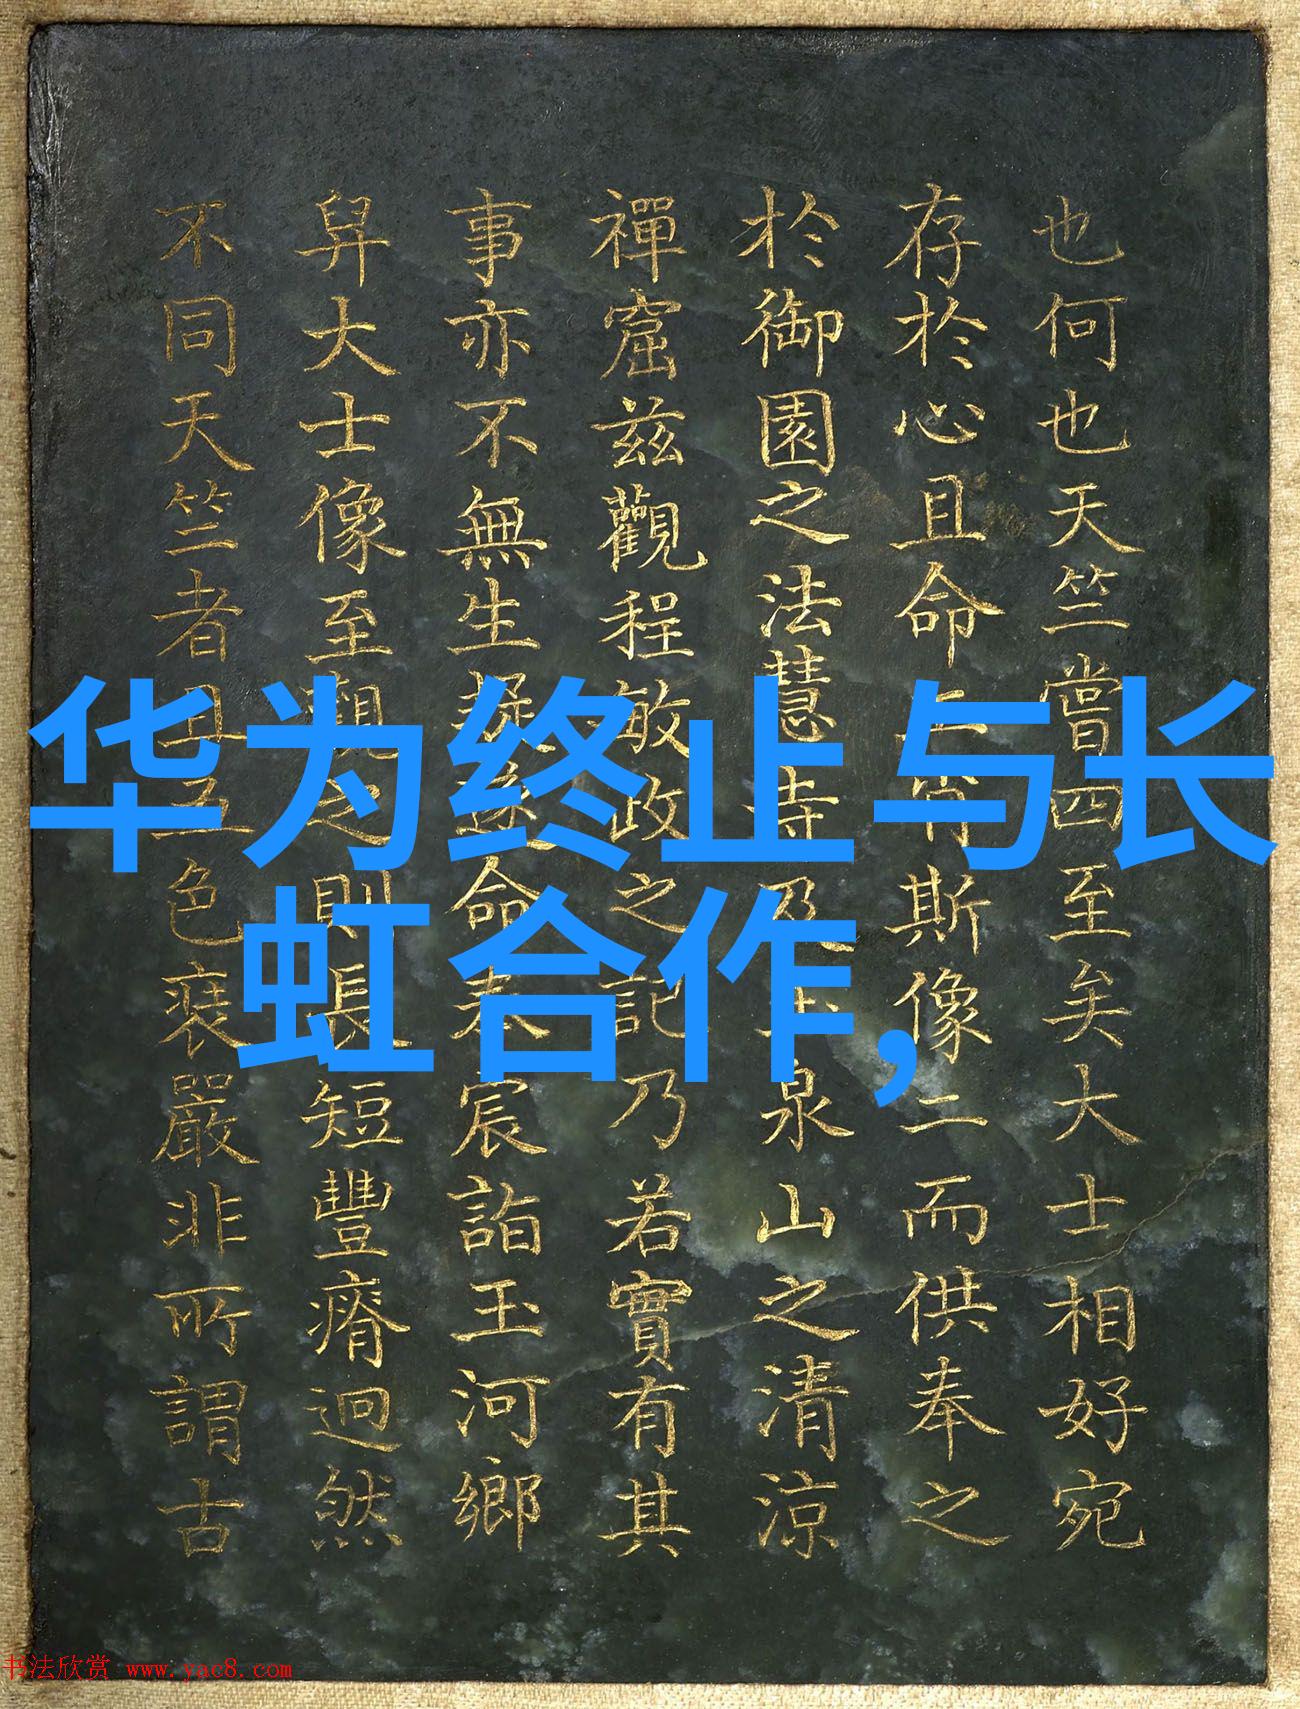 华为终止与长
虹合作,
也何也天竺嘗四至矣大士相好宛
存於心且命斯像二而供奉之
於御園之法慧寺泉山之清涼
禪窟茲觀程敏政之記乃若實有其
事亦不無生命宸詣玉河鄉
舁大士像至之則長短豐瘠迥然
不同天竺者且五色裝嚴非所謂古
书法欣赏 www.yac8.com